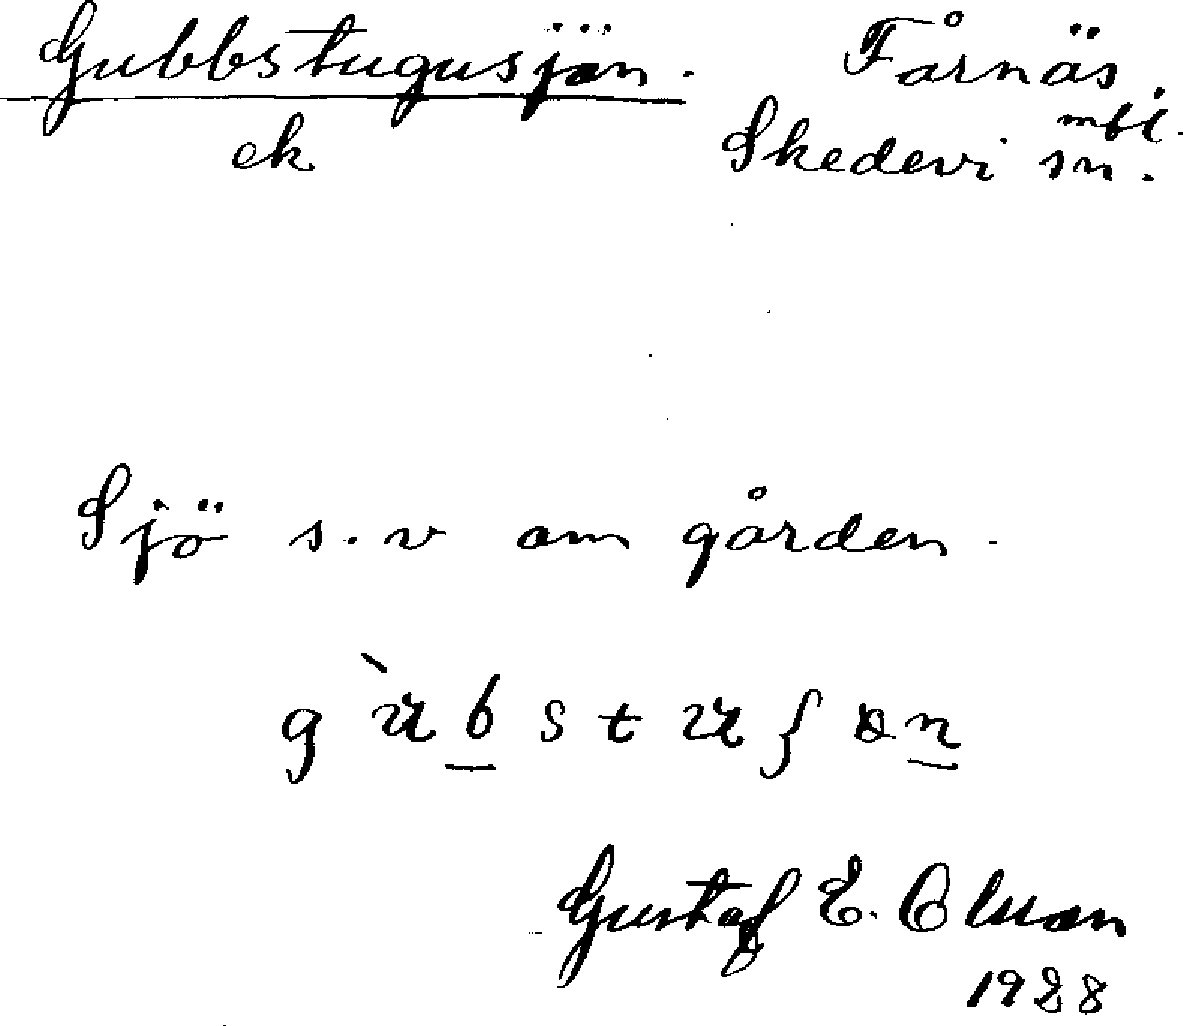 Gubbstugusjön. Fårnäs,
ek Skedevi sn. mbl.
Sjö s.v om gården.
Gustaf E. Olsson
1928